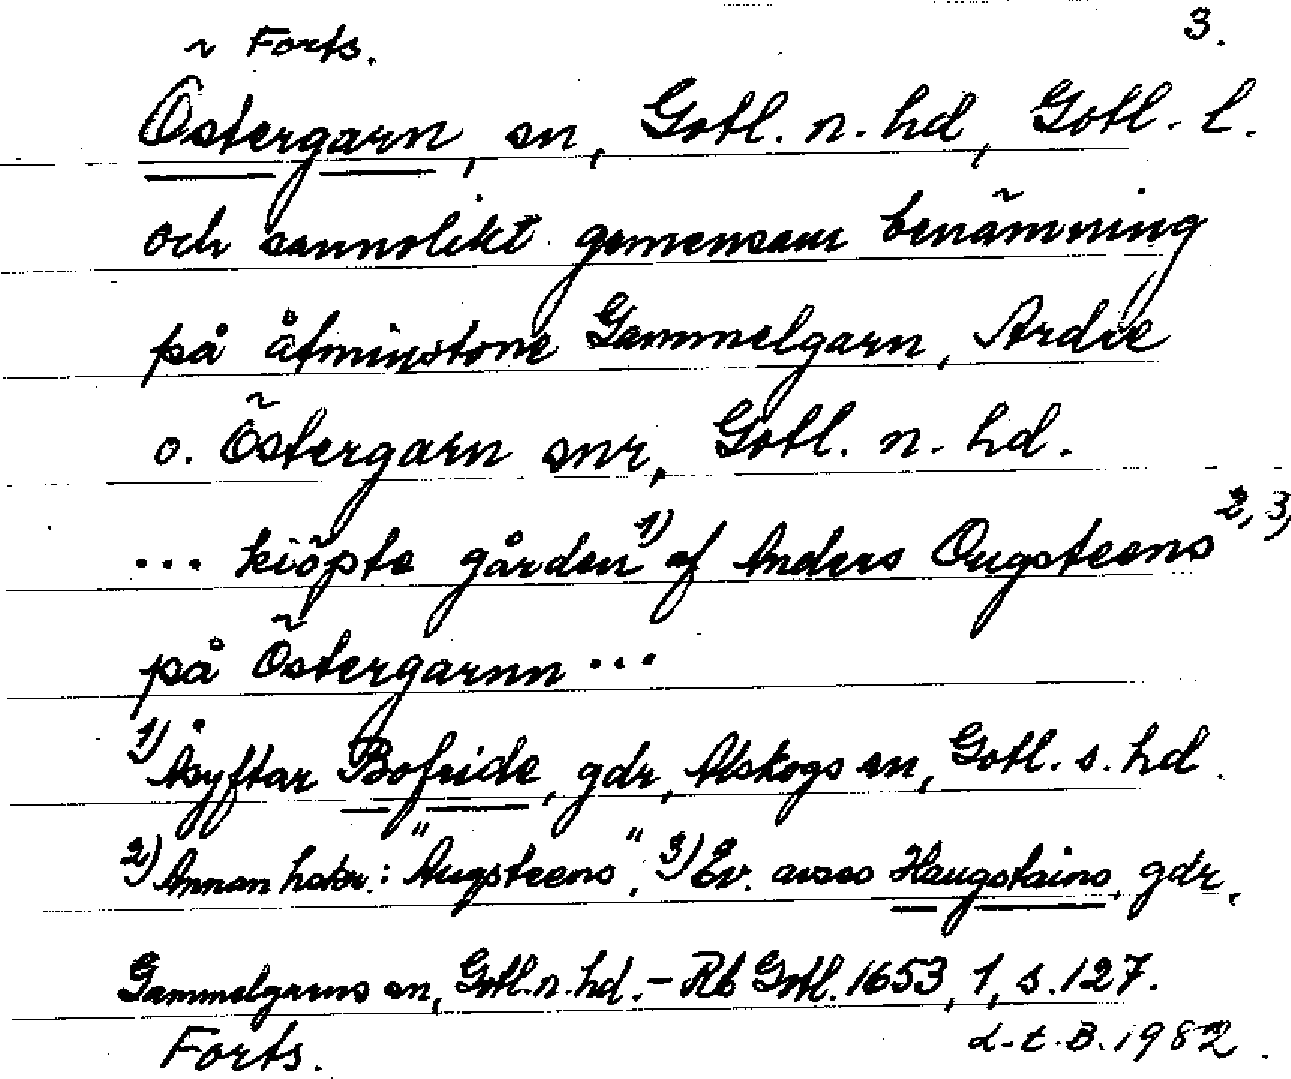 Forts. 3.
Östergarn, sn, Gotl. n. hd, Gotl. l.
och sannolikt gemensam benämning
på åtminstone Gammelgarn, Ardre
o. Östergarn snr, Gotl. n. hd.
... kiöpte gården 1) af Anders Ougsteens 2, 3)
på Östergarnn ...
1) Åsyftar Bofride, gdr, Alskogs sn, Gotl. s. hd.
2) Annan hskr.: "Augsteens". 3) Ev. avses Haugstains, gdr,
Gammelgarns sn, Gotl. n. hd. - Rb Gotl. 1653, 1, s. 127.
Forts. L. t. B. 1982.